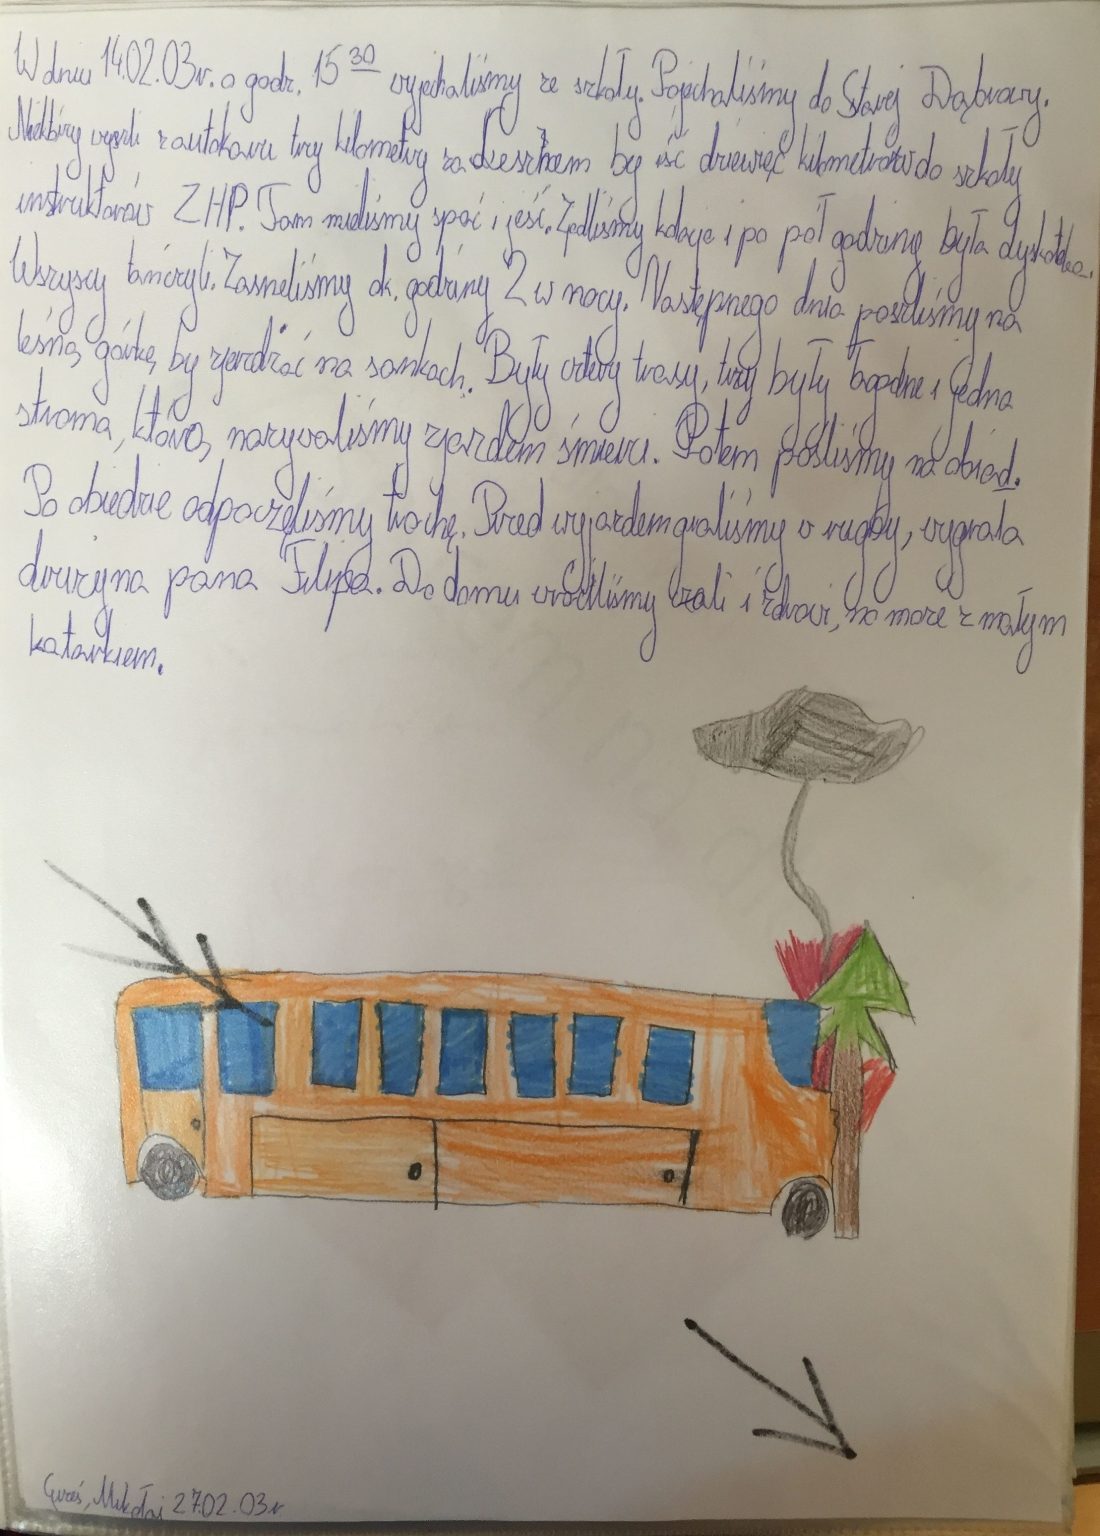 W dniu 14.02.03r. o godz. 15 30 wyjechaliśmy ze szkoły. Pojechaliśmy do Starej Dąbrowy.
Niektórzy wyszli z autokaru trzy kilometry za Leszkiem by iść dziewięć kilometrów do szkoły
instruktorów ZHP. Tam mieliśmy spać i jeść. Zjedliśmy kolacje i po pół godziny była dyskoteka.
Wszyscy tańczyli. Zasneliśmy ok. godziny 2 w nocy. Następnego dnia poszliśmy na
leśną górkę, by zjerdżać na sankach. Były cztery trasy, trzy były łagodne i jedna
stroma, którą nazywaliśmy zjazdem śmierci. Potem pośliśmy na obiad.
Po obiedzie odpoczęliśmy trochę. Przed wyjazdem graliśmy w rugby, wygrała
drużyna pana Filipa. Do domu wróciliśmy cali i zdrowi, no może z małym
katarkiem.
Mikołaj 27.02.03r